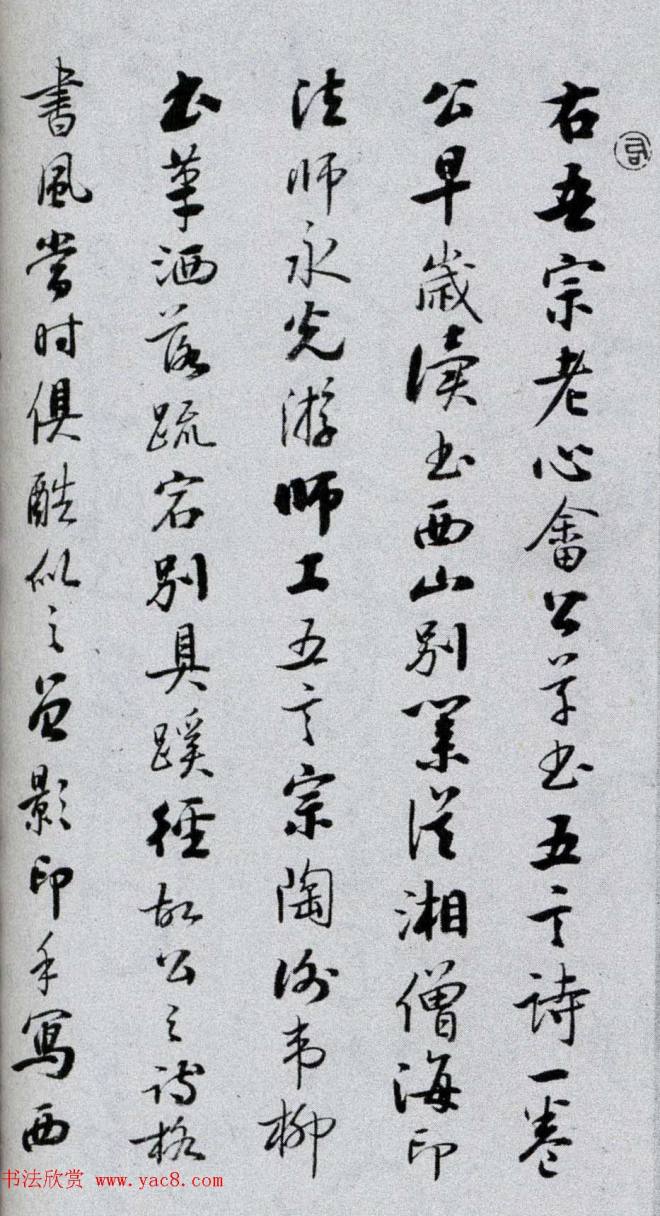 右吾宗老心畬公草书五言詩一卷
公早歲讀书西山別業從湘僧海印
法師永光游師工五言宗陶谢韦柳
书革洒落疏宕別具蹊徑故公之詩格
書風當时俱酷似之曾影印手寫西
书法欣赏 www.yac8.com